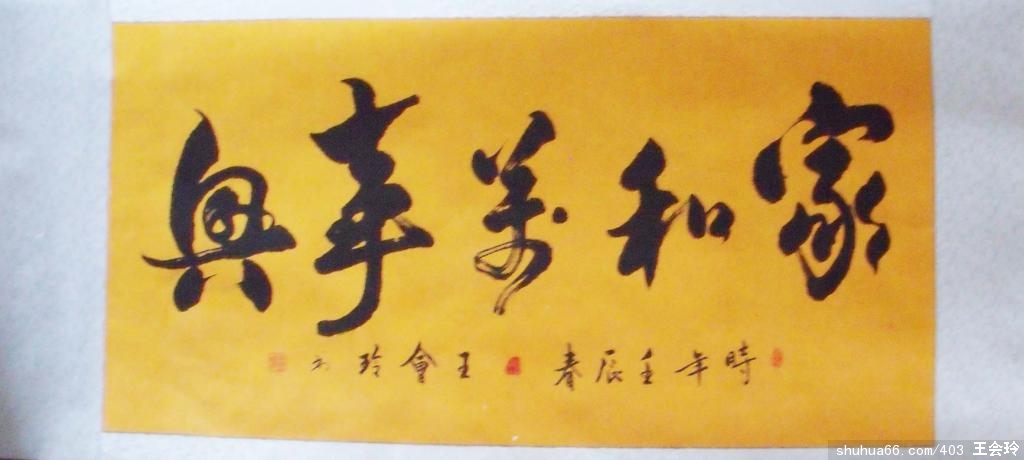 家和萬事興
時年壬辰春 王會玲书
shuhua66.com/403 王会玲